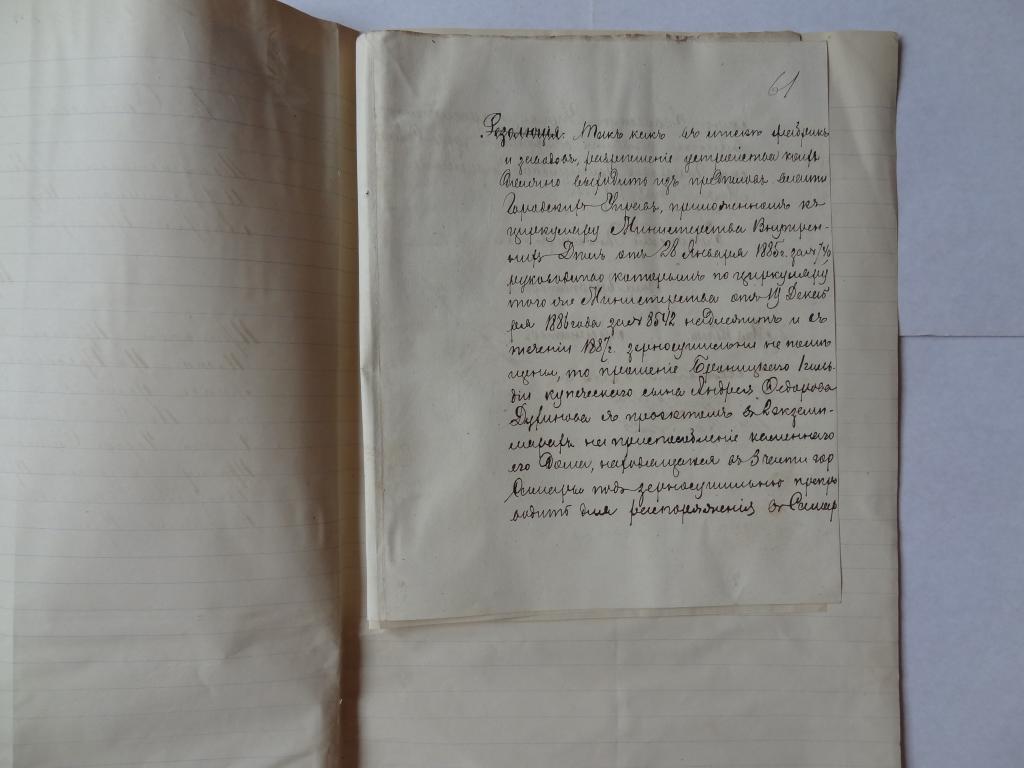 61
Резолюція. Такъ какъ въ списке фабрикъ
и заводовъ, разрешеніе устройства коихъ
должно выходить изъ пределовъ власти
Городскихъ Управъ, приложенномъ къ
циркуляру Министерства Внутрен-
нихъ Делъ отъ 28 Января 1885 г. за №
руководство которымъ по циркуляру
того же Министерства отъ 19 Декаб
ря 1886 года за № 8542 надлежитъ и въ
теченіи 1887 г. зерносушильни не поме
щены, то прошеніе 2 гиль
діи купеческаго сына Андрея Федорова
съ проэктомъ въ 2 экзем-
плярахъ на приспособленіе каменнаго
его дома, находящагося въ 3 части гор
Самары подъ зерносушильню препро
водить для распоряженія въ Самар